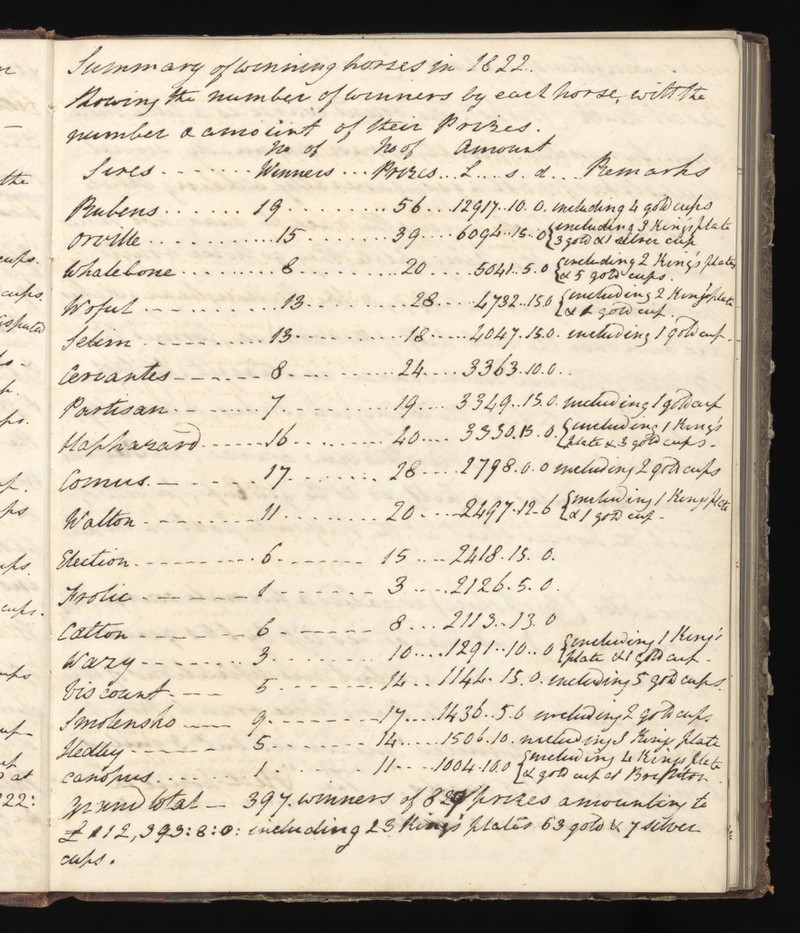 Summary of winning horses in 1822.
Showing the number of winners by each horse, with the
number & amount of their Prizes.
Sires ....... No of Winners ... No of Prizes ... Amount L .... s. d ... Remarks
Rubens ...... 19 ........ 56 ... 12917..10. 0. including 4 gold cups
Orville .......... 15 ........ 39 .... 6094..15..0 {including 3 King's plate
3 gold & 1 silver cup
Whalebone ......... 8 ........ 20 .... 5041.5.0 {including 2 King's plates
& 5 gold cups.
Woful ........... 13 ........ 28 .... 4732..15.0 {including 2 King's plate
& 1 gold cup.
Selim .......... 13 ........ 18 .... 4047.15.0. including 1 gold cup.
Cervantes ------ 8 ........ 24 .... 3363.10.0..
Partisan ------ 7 ........ 19 .... 3349..15.0. including 1 gold cup
Haphazard ----- 16 ........ 40 .... 3330.15.0. {including 1 King's
plate & 3 gold cups-
Comus. ------ 17 ........ 28 .... 2798.0.0 including 2 gold cups
Walton ------ 11 ........ 20 .... 2497.12.6 {including 1 King's plate
& 1 gold cup-
Election ------- 6 ------- 15 .... 2418.15. 0.
Frolic ------- 1 ------- 3 .... 2126.5.0.
Catton ------- 6 ------- 8 .... 2113..13.0
Wazy ------- 3 ........ 10 .... 1291..10..0 {including 1 King's
plate & 1 gold cup-
Viscount ---- 5 ------- 14 .. 1144. 15.0. including 5 gold cups.
Smolensko ---- 9 ------- 17 .... 1436..5.0 including 2 gold cups.
Hedley ------ 5 ------- 14 .... 1506.10. including 1 King's plate
Canopus .... 1 ........ 11 .... 1004.10.0 {including 4 Kings plate
& gold cup at Brighton.
Grand total — 397 winners of prizes amounting to
£112,393:8:0: including 23 King's plates 63 gold & 7 silver
cups.